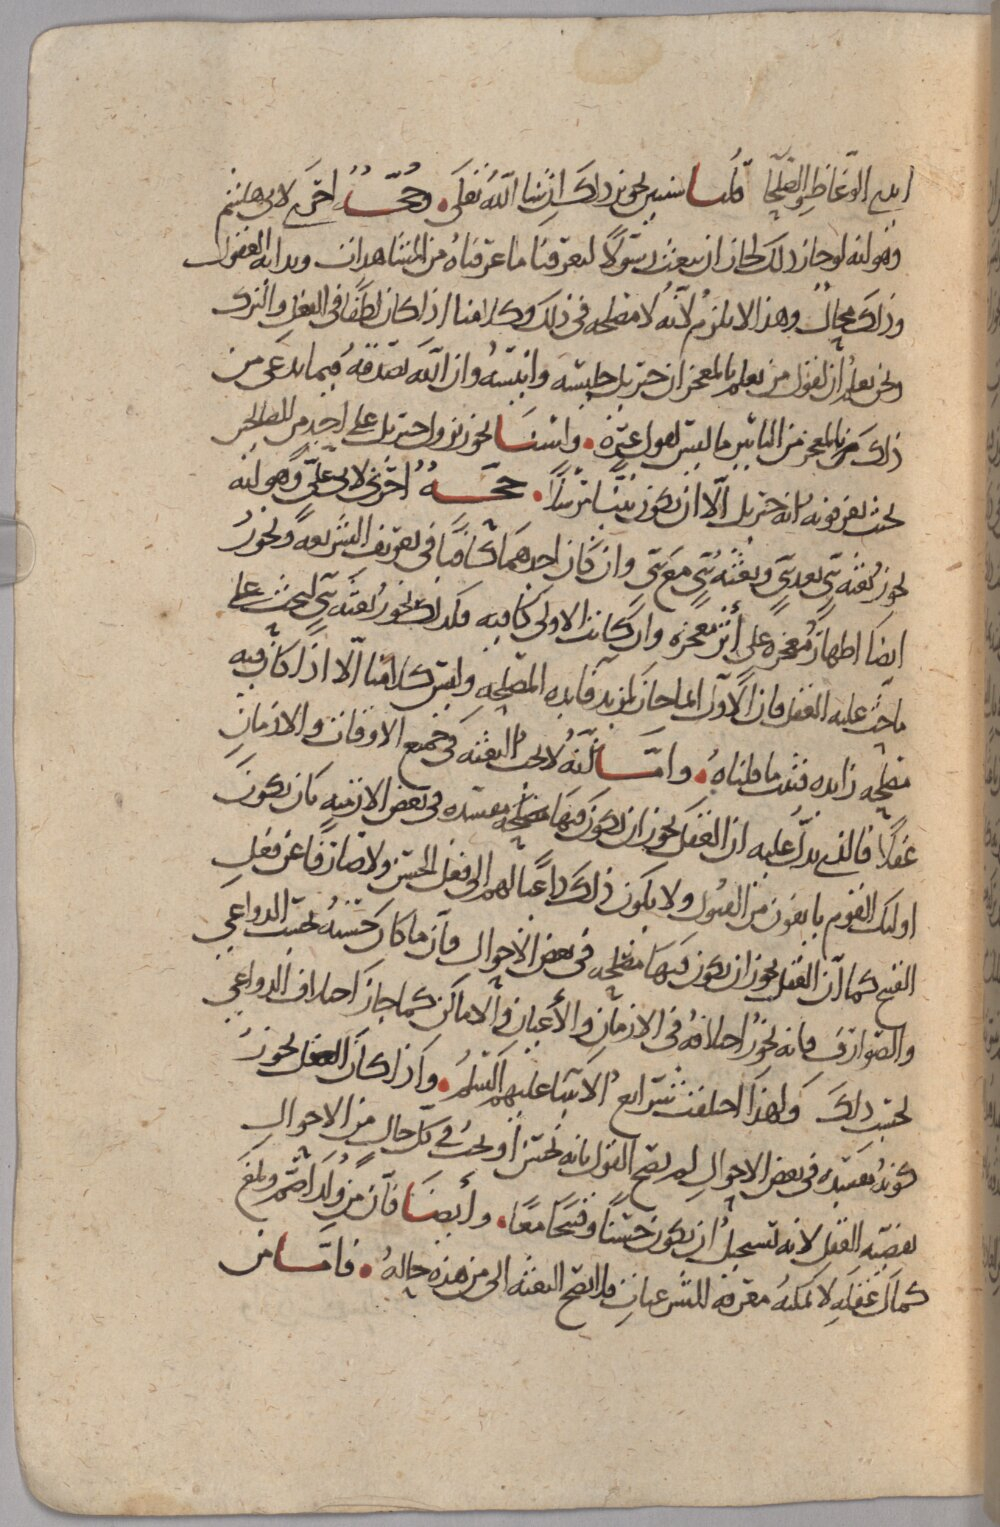 ايدي الوعاظ والصلحا قلنا سنبين تجويز ذلك ان شا الله تعالى. حجة اخرى لابي هاشم
وهو انه لو جاز ذلك لجاز ان يبعث رسولا لتعرفنا ما عرفناه من المشاهدات وبداية العقول
وذلك محال وهذا لا يلزم لانه لا مصلحه في ذلك وكلامنا اذا كان لطفا في الفعل والترك
ونحن نعلم ان لقول من يعلم بالمعجز ان جبريل جليسه وانيسه وان الله يصدقه فيما يدعي من
ذلك من بالمعجز من التاثير ما ليس لقول غيره. ولسنا نجوز نزول جبريل على احد من الصالحين
بحيث يعرفونه انه جبريل الا ان يكون نبيا مرسلا. حجة اخرى لابي علي وهو انه
يجوز بعثة نبي بعد نبي وبعثة نبي مع نبي وان كان احدهما كافيا في تعريف الشريعة ويجوز
ايضا اظهار معجزه على أثر معجزه وان كانت الاولى كافيه فكذلك يجوز بعثة نبي ليحث على
ما حث عليه العقل فان الاول انما جاز لمزيد فايده المصلحه وليس كلامنا الا اذا كان فيه
مصلحه زايده فثبت ما قلناه. وامسا انه لا يجب البعثه في جميع الاوقات والازمان
عقلا فالذي يدل عليه ان العقل يجوز ان يكون فيها مفسده في بعض الازمنه بان يكون
اوليك القوم يانفون من القبول ولا يكون ذلك داعيا لهم الى فعل الحسن ولا صارفا عن فعل
القبيح كما أن العقل يجوز ان يكون فيها مصلحه في بعض الاحوال فان ما كان حسنه بحسب الدواعي
والصوارف فانه يجوز اختلافه في الازمان والأعيان والاماكن كما جاز اختلاف الدواعي
بحسب ذلك ولهذا اختلفت شرايع الانبيا عليهم السلم. واذا كان العقل يجوز
كونه مفسده في بعض الاحوال لم يصح القول بانه يحسن او يجب في كل حال من الاحوال
بقضية العقل لانه يستحيل ان يكون حسنا وقبيحا معا. وأيضا فان من ولد اصم وبلغ
كمال عقله لا يمكنه معرفة الشرعيات فلا تصح البعثه الى من هذه حاله. فامسا من